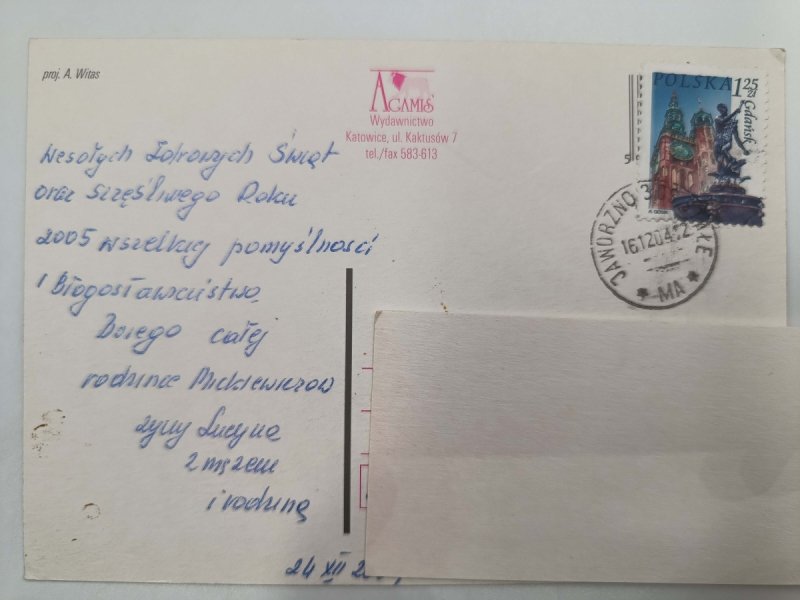 proj. A. Witas
AGAMIS
Wydawnictwo
Katowice, ul. Kaktusów 7
tel./fax 583-613
POLSKA 1 25 zł
Gdańsk
JAWORZNO 3
16.12.04.12
MA
Wesołych Zdrowych Świąt
oraz szczęśliwego Roku
2005 wszelkiej pomyślności
i Błogosławieństwa
Bożego całej
rodzince Mickiewiczów
życzy Lucyna
z mężem
i rodziną
24 XII